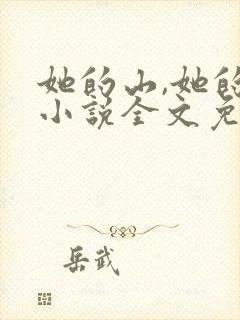 她的山,她的
小说全文免
岳武